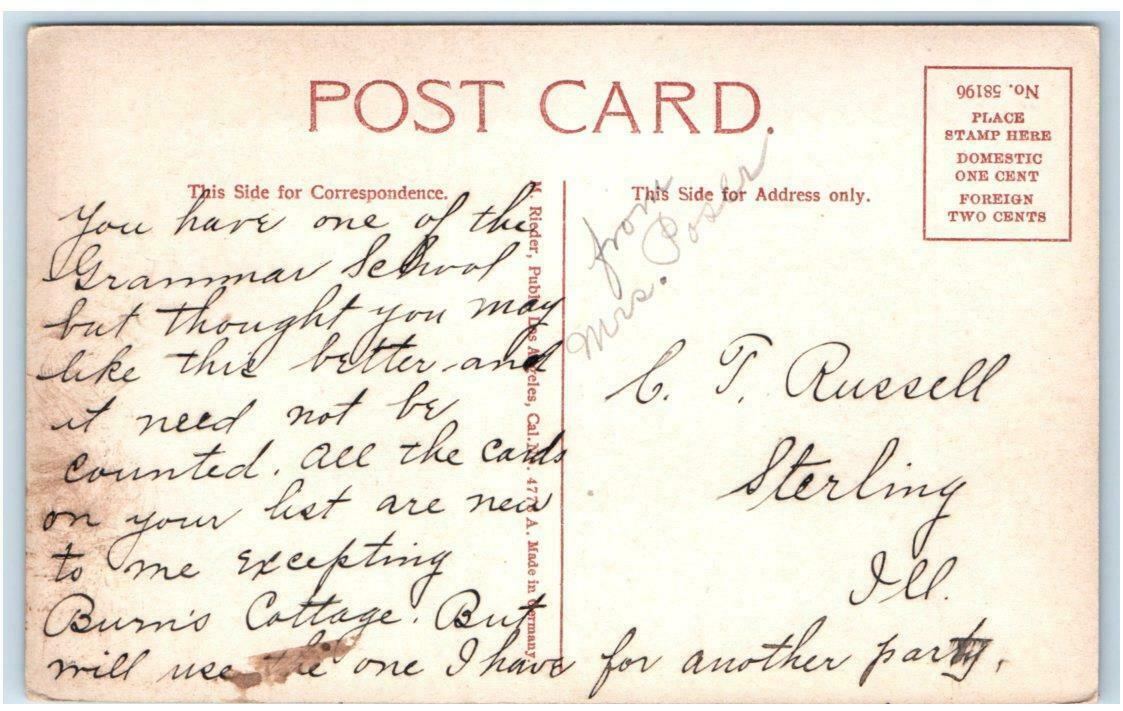 POST CARD.
No. 58196
PLACE
STAMP HERE
DOMESTIC
ONE CENT
FOREIGN
TWO CENTS
This Side for Correspondence.
This Side for Address only.
You have one of the
Grammar School
but thought you may
like this better and
it need not be
counted. All the cards
on your list are new
to me excepting
Burn's Cottage. But
will use the one I have for another party.
M. Rieder, Publ. Los Angeles, Cal. No. 4778 A. Made in Germany
from
Mrs. Poser
C. T. Russell
Sterling
Ill.